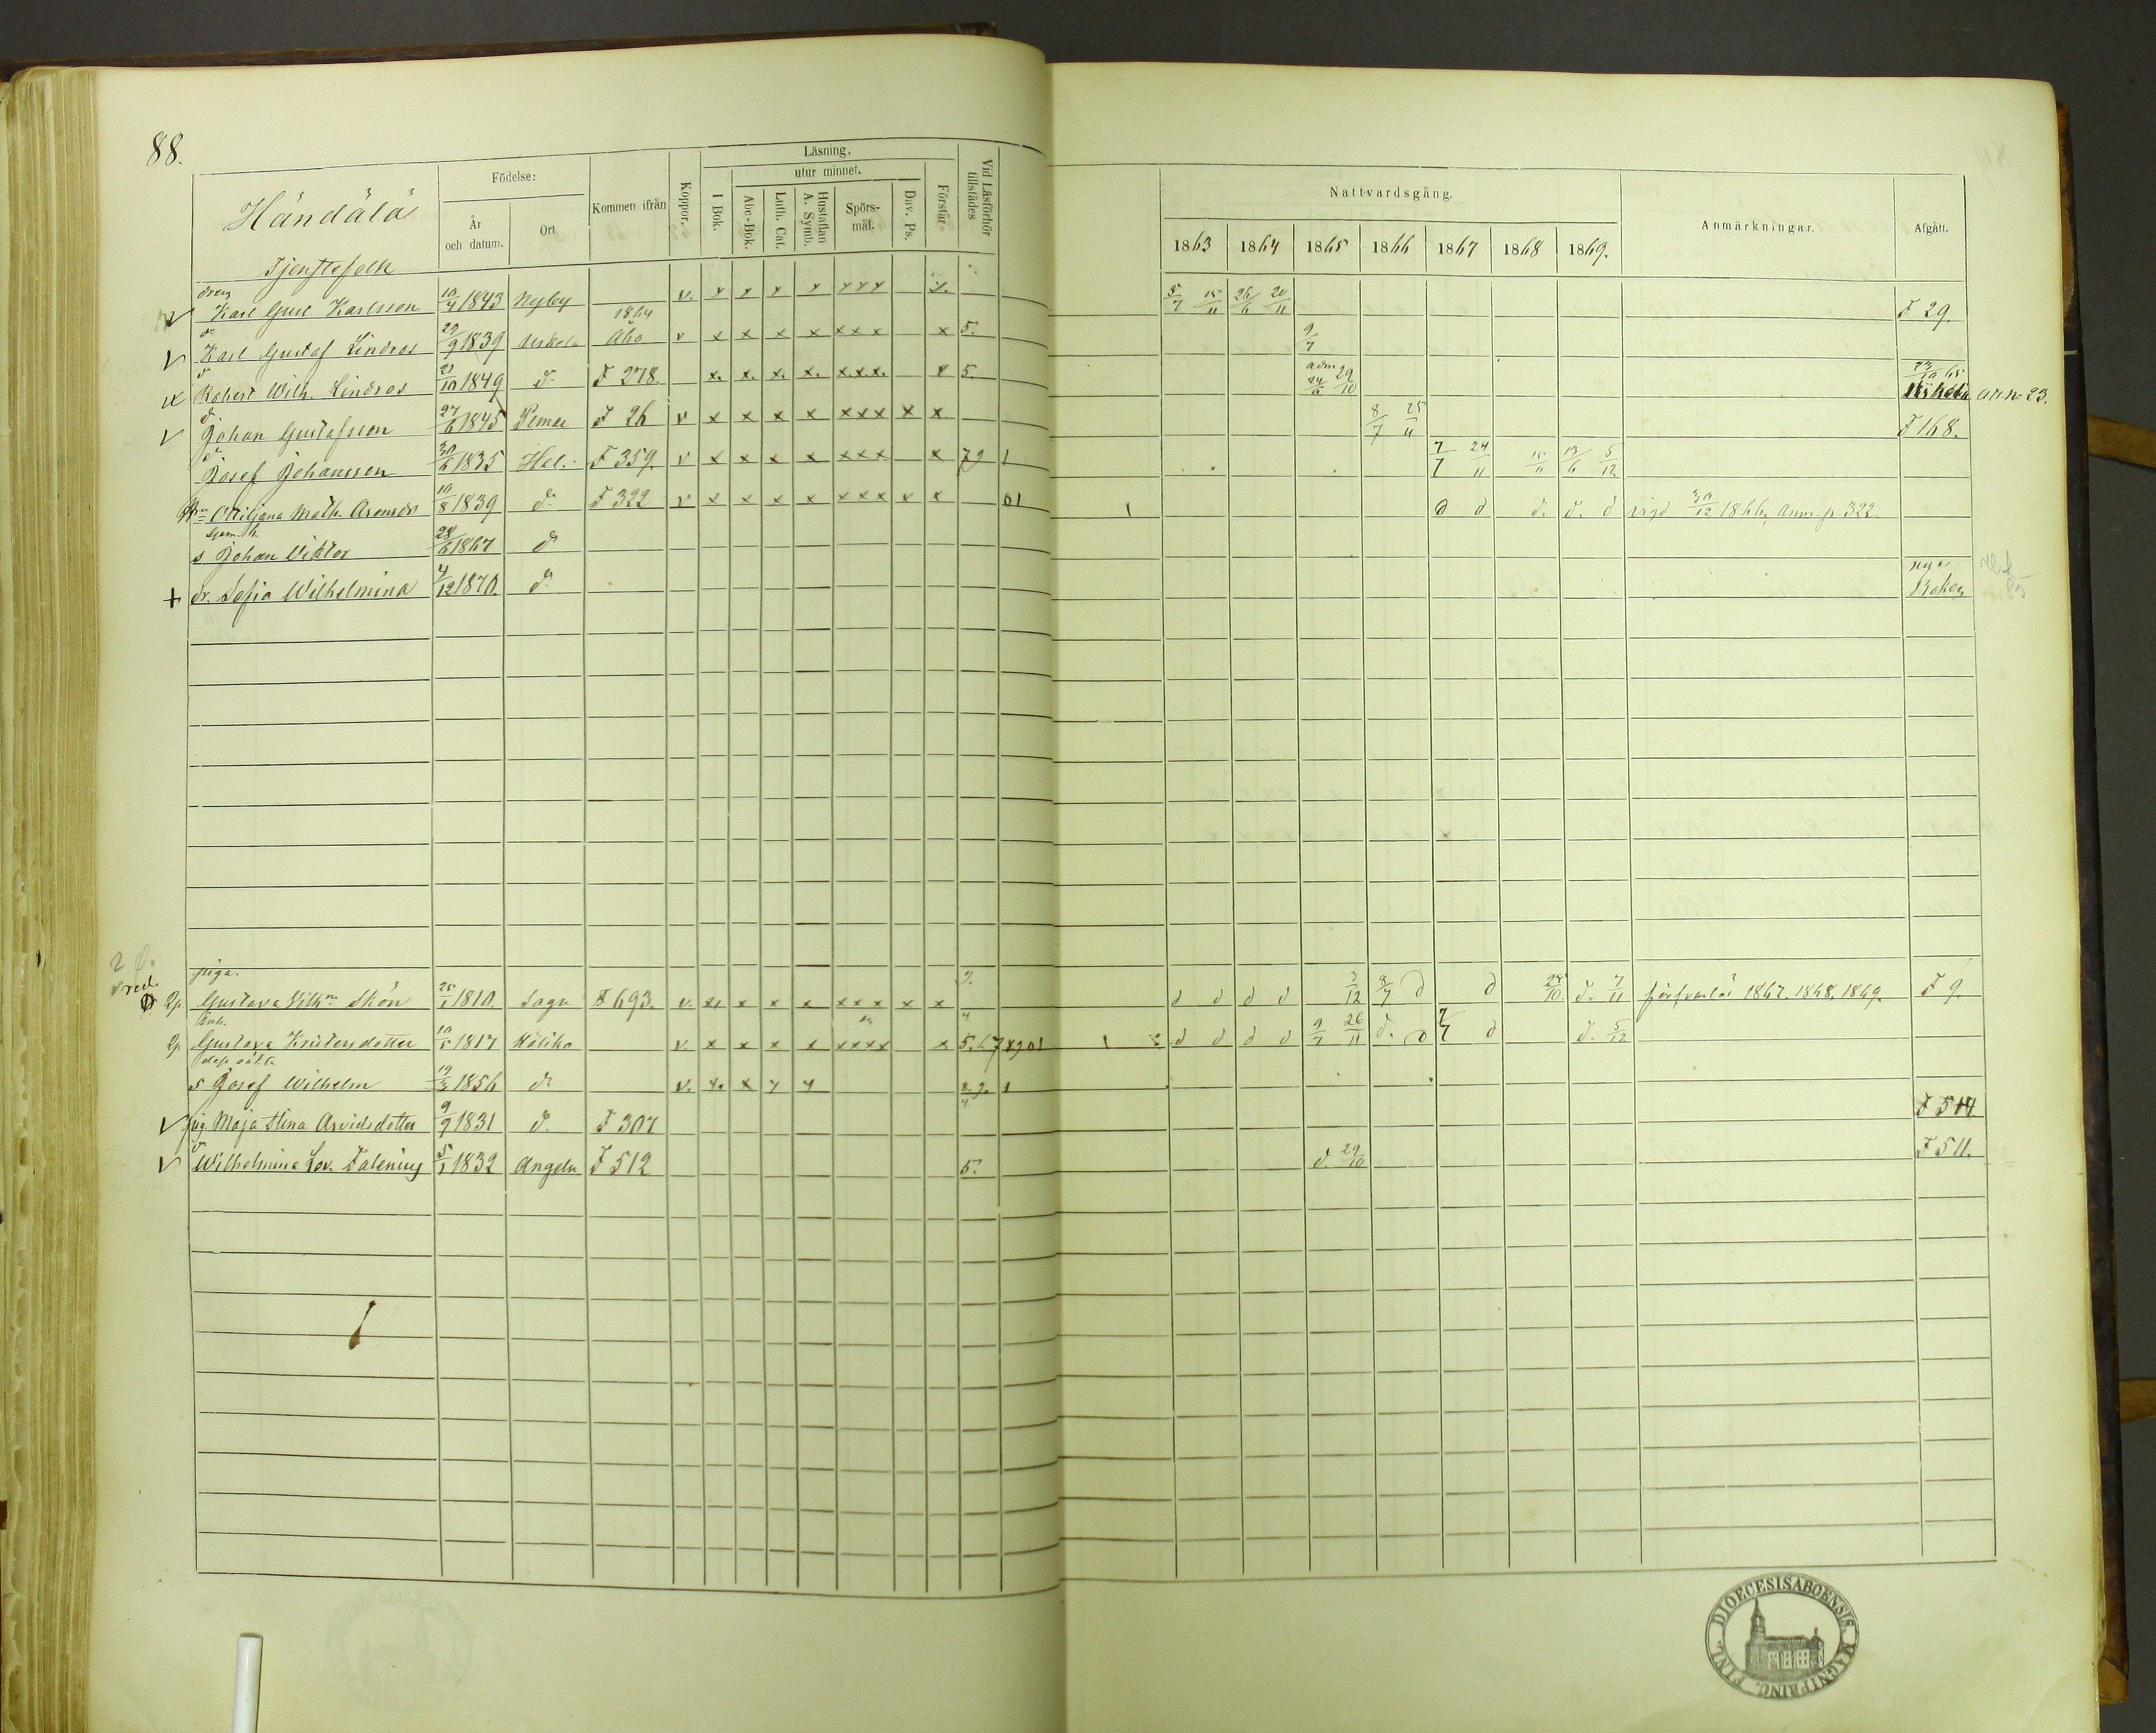 88.
Händälä
Tjenstefolk
Födelse:
År och datum.
Ort
Kommen ifrån
Koppor.
Läsning.
utur minnet.
I Bok.
Abc-Bok.
Luth. Cat.
Hustaflan A. Symb.
Spörs-mål.
Dav. Ps.
Förstår.
Vid Läsförhör tillstädes
Nattvardsgång.
1863 1864 1865 1866 1867 1868 1869.
Anmärkningar.
Afgått.
dreng
Karl Gust Karlsson 10/4 1843 Nyby v. x x x x xxx x. 5/7 15/11 26/6 20/11 F 29.
d:o Karl Gustaf Lindros 29/9 1839 Uskela 1864 Åbo v x x x x xxx x 5. 9/7
d:o Robert Wilh. Lindros 21/10 1849 d:o F 278. x. x. x. x. x.x.x. x 5. adm 24/6 29/10 /10 65 att n 23.
d:o Johan Gustafsson 27/6 1845 Pemar F 26 v x x x x xxx x x 8/7 25/11 F 168.
d:o Josef Johansson 30/6 1835 Hal. F 359. v x x x x xxx x 79 1 7/7 24/11 15/11 13/6 5/12
Ottiljana Math. 10/8 1839 d:o F 322 v x x x x xxx x x 01 1 d d d. d. d vigd 30/12 1866, Anm. p. 322.
s Johan Viktor 28/6 1867 d:o
dr. Sofia Wilhelmina 4/12 1870. d:o nya Boken
piga.
2p. Gustava Vilh:na Skön 25/1 1810. Sagu F 693. v. x. x x x xxx x x 9. d d d d 3/12 8/7 d d 25/10. d. 7/11 försvarlös 1867. 1868. 1869. F 9.
Enk.
2p. Gustava Kristersdotter 10/5 1817 Koliko v. x x x x xxxx x 5. 678901 1 2 d d d d 9/7 26/11 d. d 7/7 d d. 5/12
s Josef Wilhelm 19/3 1856 d:o v. x. x x x 8.9. 1
pig. Maja Stina Arvidsdotter 9/9 1831 d:o F 307 F 514
d:o Wilhelmina Lov. Falenius 5/1 1832 Angeln F 512 5. d. 29/10 F 511.
DIOECESIS ABOENSIS. MAGNI PRINC. FINL.